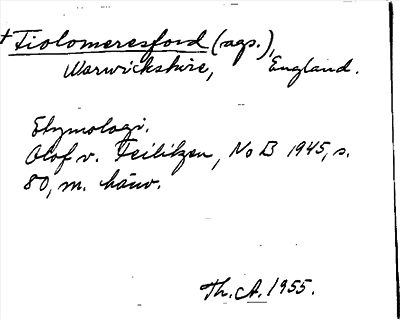 + Tiolomeresford (ags.),
Warwickshire, England.
Etymologi.
Olof v. Feilitzen, NoB 1945, s.
80, m. hänv.
Th. A. 1955.